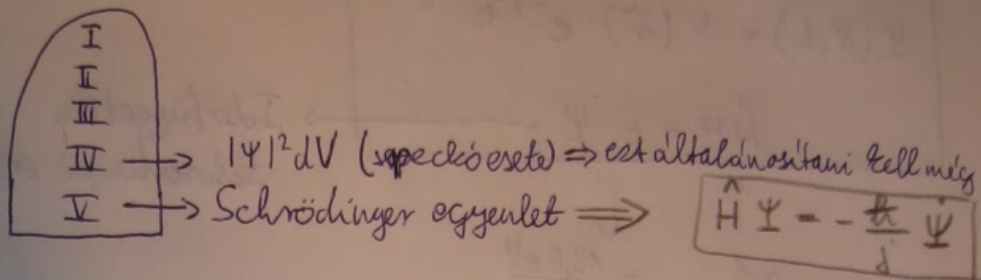 I
II
III
IV → |Ψ|² dV (speckó esete) ⇒ ezt általánosítani kell még
V → Schrödinger egyenlet ⟹ Ĥ Ψ = - ℏ/j Ψ̇